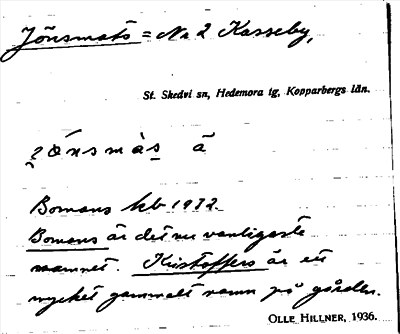 Jönsmats = No 2 Kasseby,
St. Skedvi sn, Hedemora tg, Kopparbergs län.
jönsmàs ä
Bomans kb 1932.
Bomans är det nu vanligaste
namnet. Kristoffers är ett
mycket gammalt namn på gården.
OLLE HILLNER, 1936.